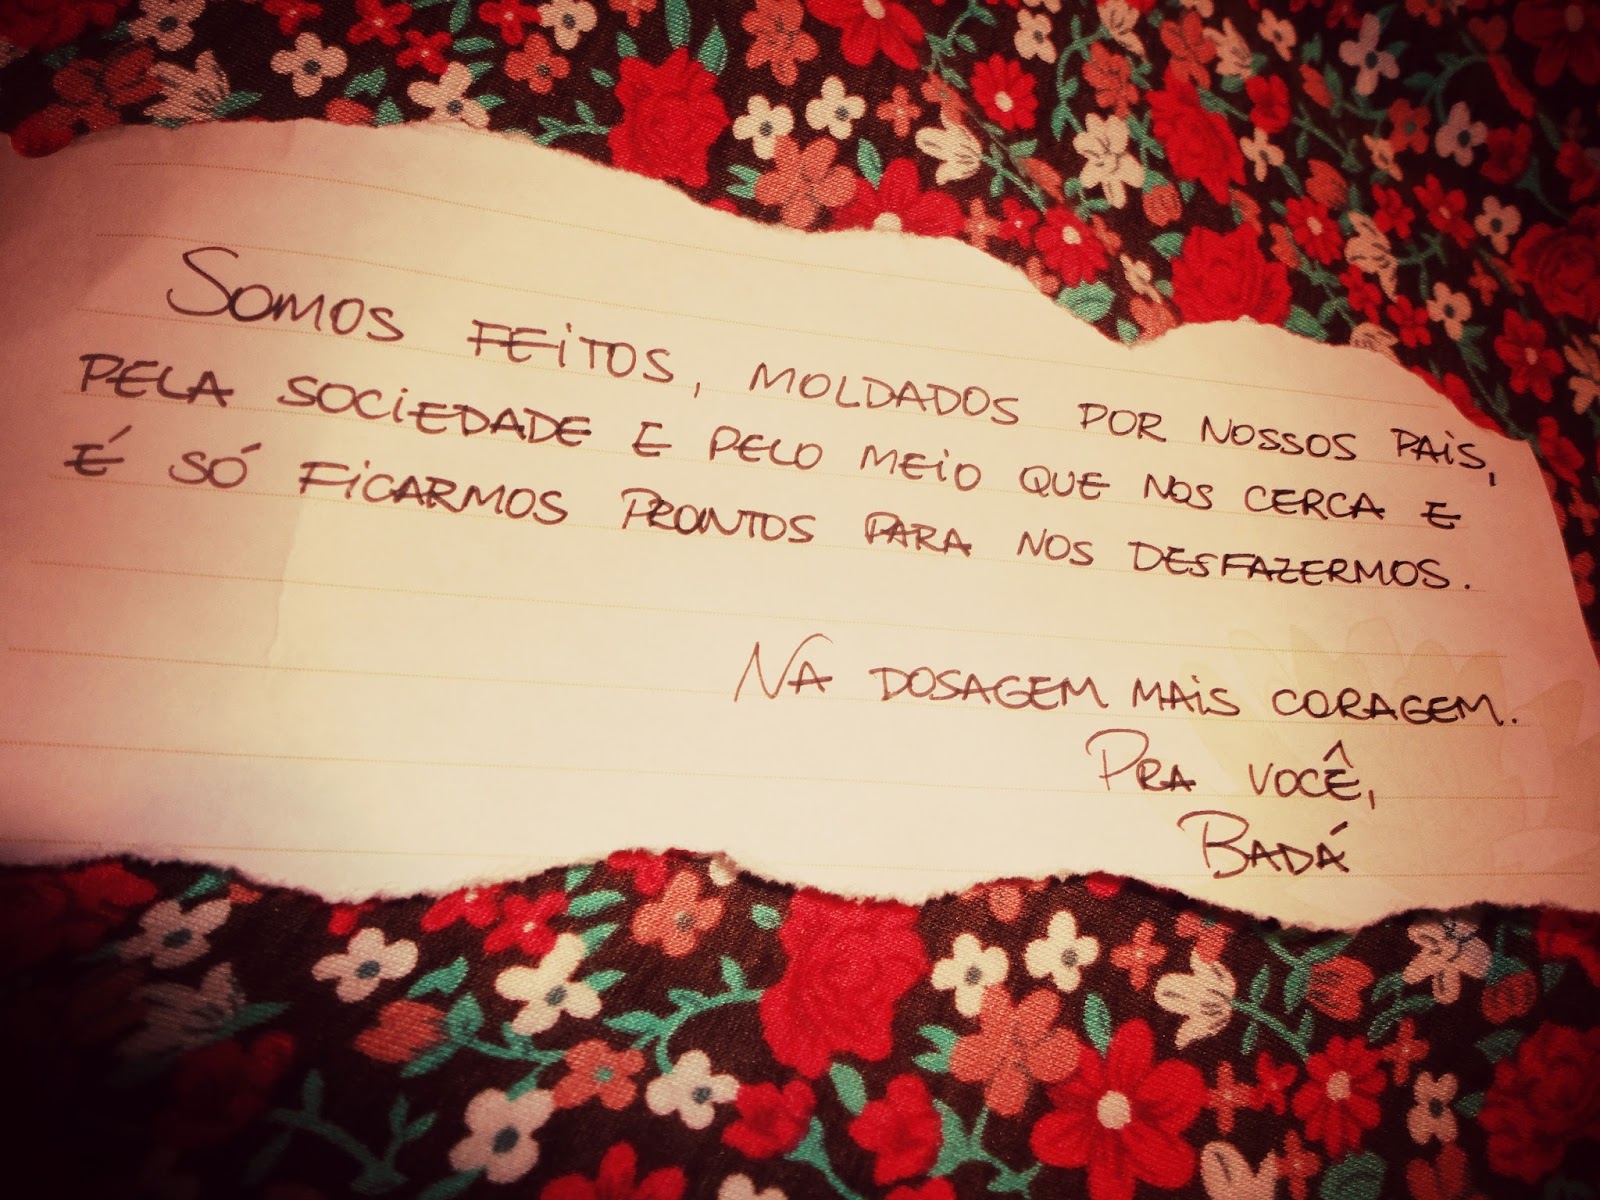 SOMOS FEITOS, MOLDADOS POR NOSSOS PAIS,
PELA SOCIEDADE E PELO MEIO QUE NOS CERCA E
É SÓ FICARMOS PRONTOS PARA NOS DESFAZERMOS.
NA DOSAGEM MAIS CORAGEM.
PRA VOCÊ,
BADÁ